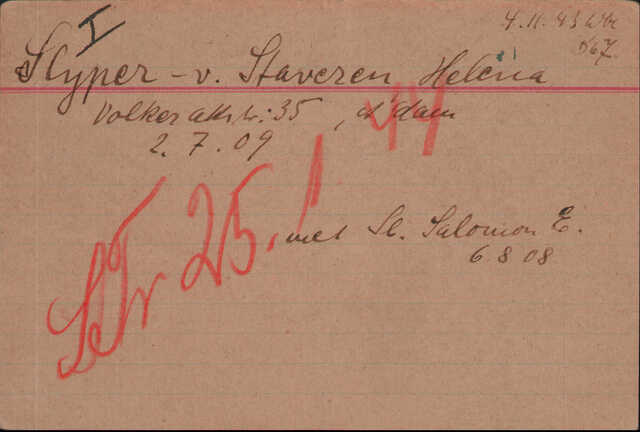 I
4.11.43 Wbr
567
Slyper - v. Staveren Helena
Volkerakstr: 35, A'dam
2.7.09
Str 25.1 44
met Sl. Salomon E.
6.8.08